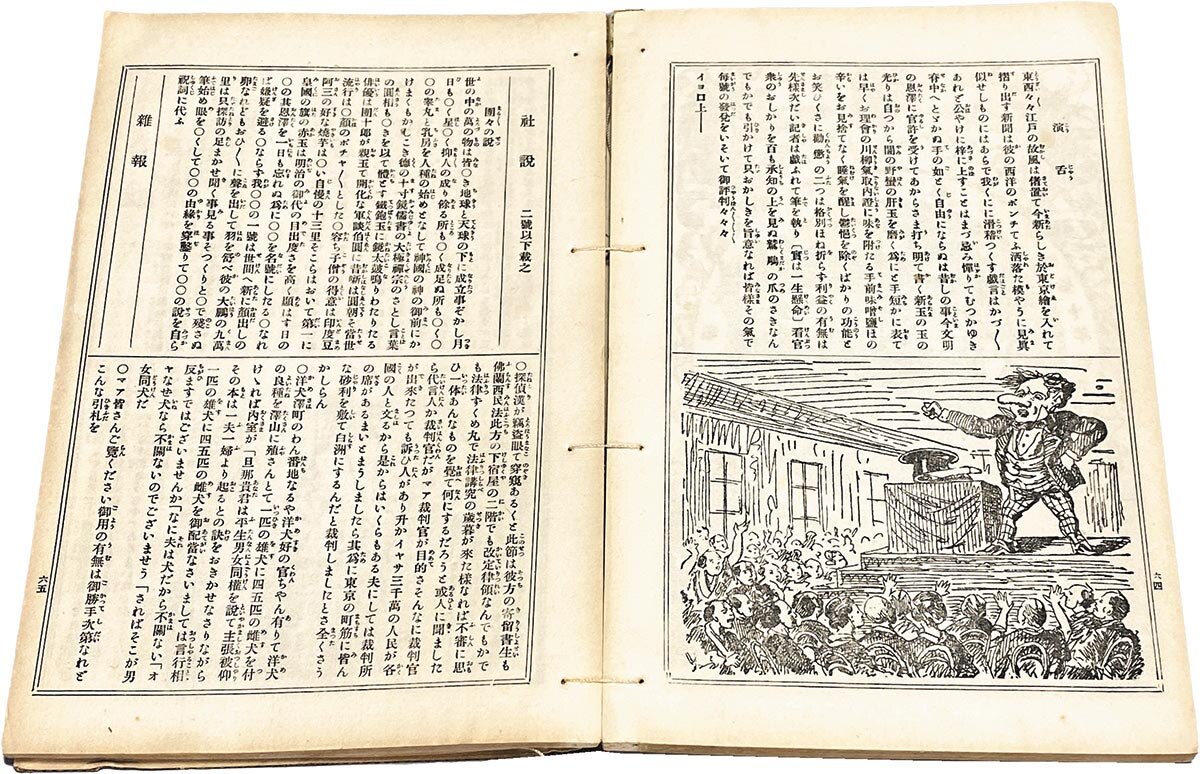 演舌
東西々々江戸の故風は儲置て今新らしき於東京繪を入れて
摺り出す新聞は彼の西洋のポンチてふ洒落た模やうに見眞
似せしものにはあらで我くにに滑稽つくす戯言はかづ〱
あれど公やけに梓に上すことはまづ恐み憚りてむつかゆき
脊中へとゞかぬ手の如とく自由にならぬは昔しの事今文明
の恩澤に官許を受けてあからさま打ち明て書く新玉の玉の
光りは自つから闇の野蛮の肝玉を磨く爲にと手短かに表て
は早くお理會の川柳氣取内證に味を附たる手前味噌鹽ほの
辛いをお見捨てなく睡氣を醒し鬱悒を除くばかりの功能と
お笑ひくさに勸懲の二つは格別ほね折らず利益の有無は
先樣次だい記者は戯ふれて筆を執り〔實は一生懸命〕看官
衆のおしかりを百も承知の上を見ぬ鷲の爪のさきなん
でもかでも引かけて只おかしきを旨意なれば皆樣その氣で
毎號の發兌をいそいて御評判々々々
イョロ上――
六四
社説
二號以下載之
團々の説
世の中の萬の物は皆〇き地球と天球の下に成立事ぞかし月
日も〇く星〇く抑人の成り餘る所も〇く成足ぬ所も〇く〇
〇の睾丸と乳房を人種の始めとなして神國の神の御前にか
けまくもかしこき德の十寸鏡儒書の大極禪宗のさとし言葉
の圓相も〇きを以て體とす鐵鉋玉に銃太鼓鳴りわたりたる
俳優は團十郎が親玉で開化な軍談伯圓に昔噺は圓朝と當世
流行は〇顔のポチヤ〱とした〇容ち子僧の得意は印度豆
阿三の好な燒芋は〇い自慢の十三里そこらはおいて第一に
皇國の旗の赤玉は明治の御代の日出度さを高く顯はす日の
〇の其恩澤を一日も忘れぬ爲に〇〇を名號にしたる〇なれ
ど嫌疑を避る〇ならず我〇〇の一號は世間へ新に顔出しの
卵なれどもおひ〱に聲を出して翔を舒べ彼の大鵬の九萬
里は只探訪の足まかせ聞く事見る事そつくりと〇で殘さぬ
筆始め眼を〇くして〇〇の由緣を穿鑿りて〇〇の説を自ら
祝詞に代ふ
雜報
〇探偵漢が竊盗眼で穿索あるくと此節は彼方の寄留書生も
佛蘭西民法此方の下宿屋の二階でも改定律領なんでもかで
も法律ずくめ丸で法律講究の歳暮が來た樣なれば不審に思
ひ一体あんなものを覺て何にするだろうと或人に聞ました
ら代言人か裁判官だがマア裁判官が目的さそんなに裁判官
が出來たつても訴ひ人があり升かイヤサ三千萬の人民が各
國の人とも交るから是からはいくらもある夫にしては裁判所
の席があるまいとまうしましたら其爲に東京の町筋に皆ん
な砂利を敷て白洲にするんだと裁判しましたとさ全くさう
かしらん
〇洋犬澤町のわん番地なるや洋犬好の官らやん有りて洋犬
の良種を澤山に殖さんとて一匹の雄犬に四五匹の雌犬を付
けゝれば内室が「旦那貴君は平生男女同權を説て主張彼仰
その本は一夫一婦より起るとの訣をおきかせなさりながら
一匹の雄犬に四五匹の雌犬を御配當なさいましては言行相
反ますではございませんか「なに夫は犬だから不關ない「オ
ヤなぜ犬なら不關ないのでございませう「さればそこが男
女同犬だ
〇マア皆さんご覽ください御用の有無は御勝手次第なれど
こんな引札を
六五